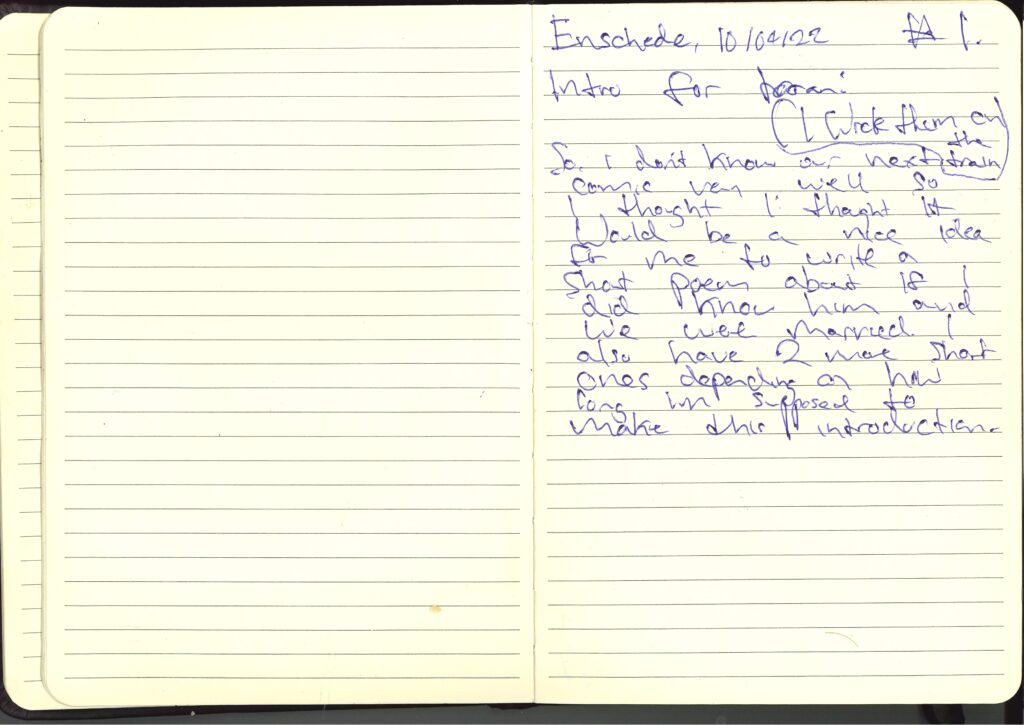 Enschede, 10/04/22 1.
Intro for
(I wrote them on
the
So. I don't know our next train
comic very well so
I thought I thaght it
Would be a nice idea
for me to write a
short poem about if I
did know him and
we were married. I
also have 2 more short
ones depending on how
long im supposed to
make this introduction.